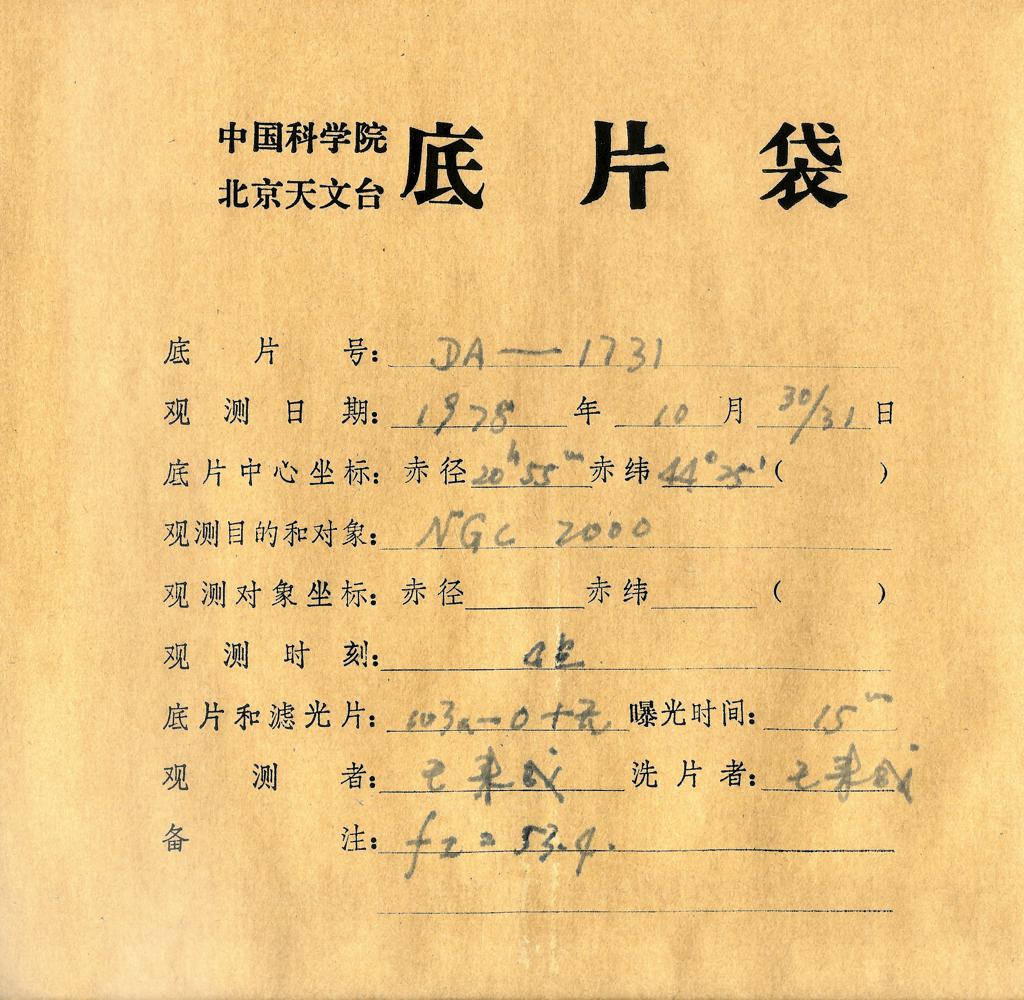 中国科学院
北京天文台
底片袋
底片号: DA—1731
观测日期: 1978年10月30/31日
底片中心坐标: 赤径20h55m赤纬44°25′( )
观测目的和对象: NGC 2000
观测对象坐标: 赤径 赤纬 ( )
观测时刻:
底片和滤光片: 103a-O+无 曝光时间: 15m
观测者: 洗片者:
备注: fz=53.4.